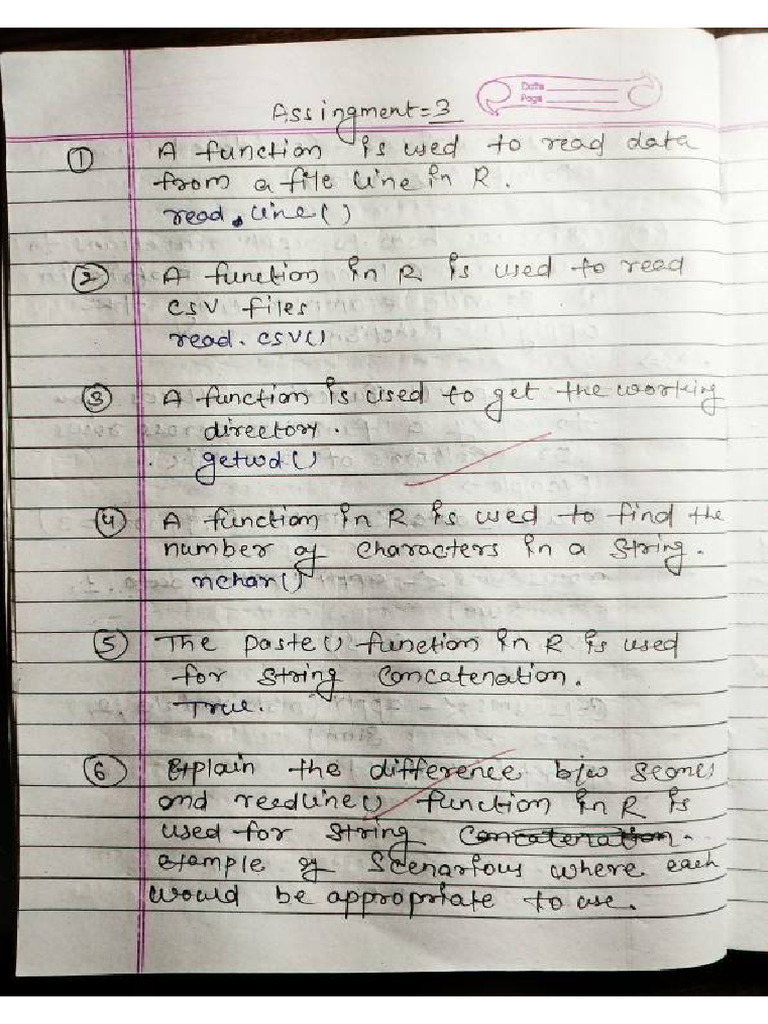 Assingment = 3
Date
Page
① A function is used to read data
from a file line in R.
read.line()
② A function in R is used to read
CSV files
read.csv()
③ A function is used to get the working
directory.
getwd()
④ A function in R is used to find the
number of characters in a string.
nchar()
⑤ The paste() function in R is used
for string concatenation.
True.
⑥ Explain the difference b/w
and readline() function in R is
used for string
example of where each
would be appropriate to use.